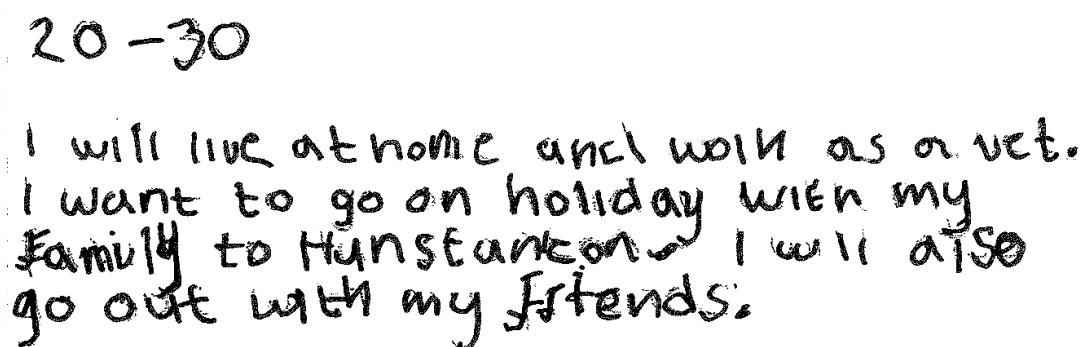 20-30
I will live at home and work as a vet.
I want to go on holiday with my
Family to Hunstanton. I will also
go out with my Friends.